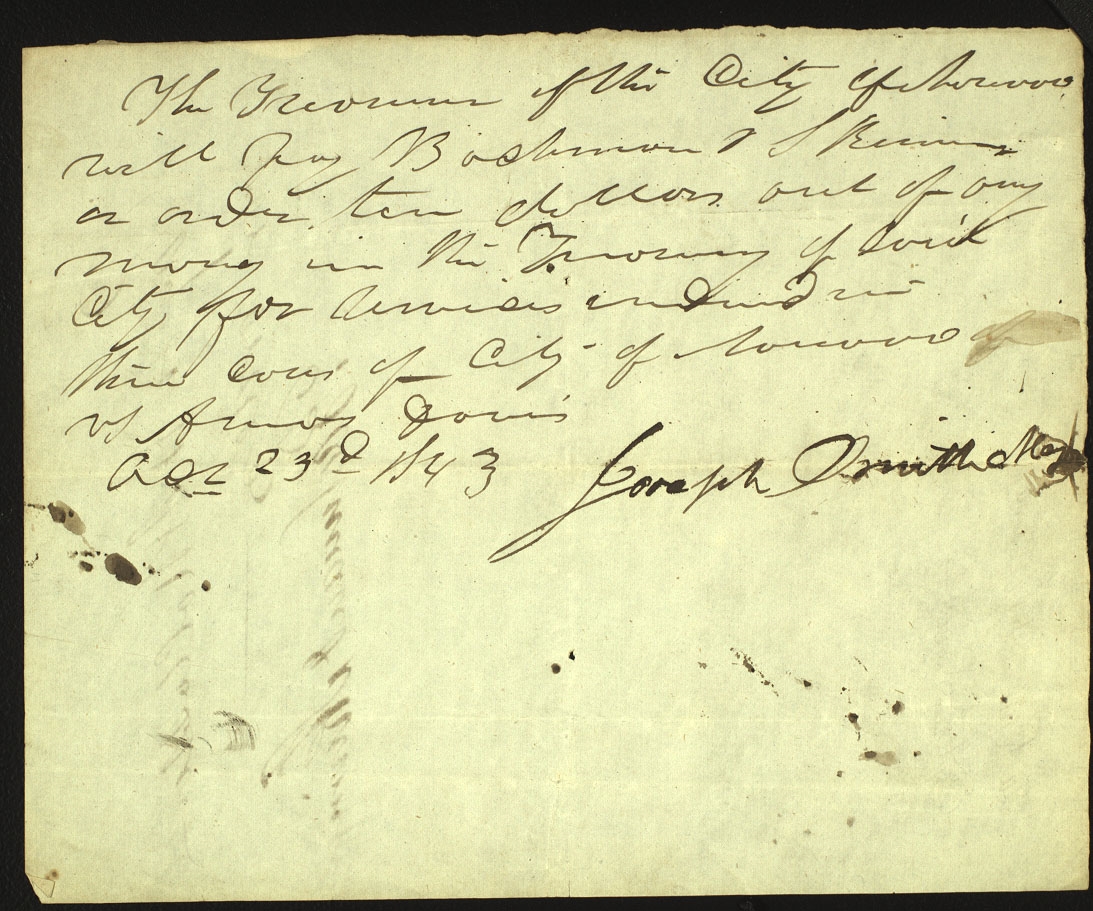 The Treasurer of the City of Nauvoo
will pay Backman & Skinner
or order ten dollars out of any
money in the Treasury of said
City for Services rendered in
the case of City of Nauvoo
vs Amos Davis
Oct 23d 1843 Joseph Smith May